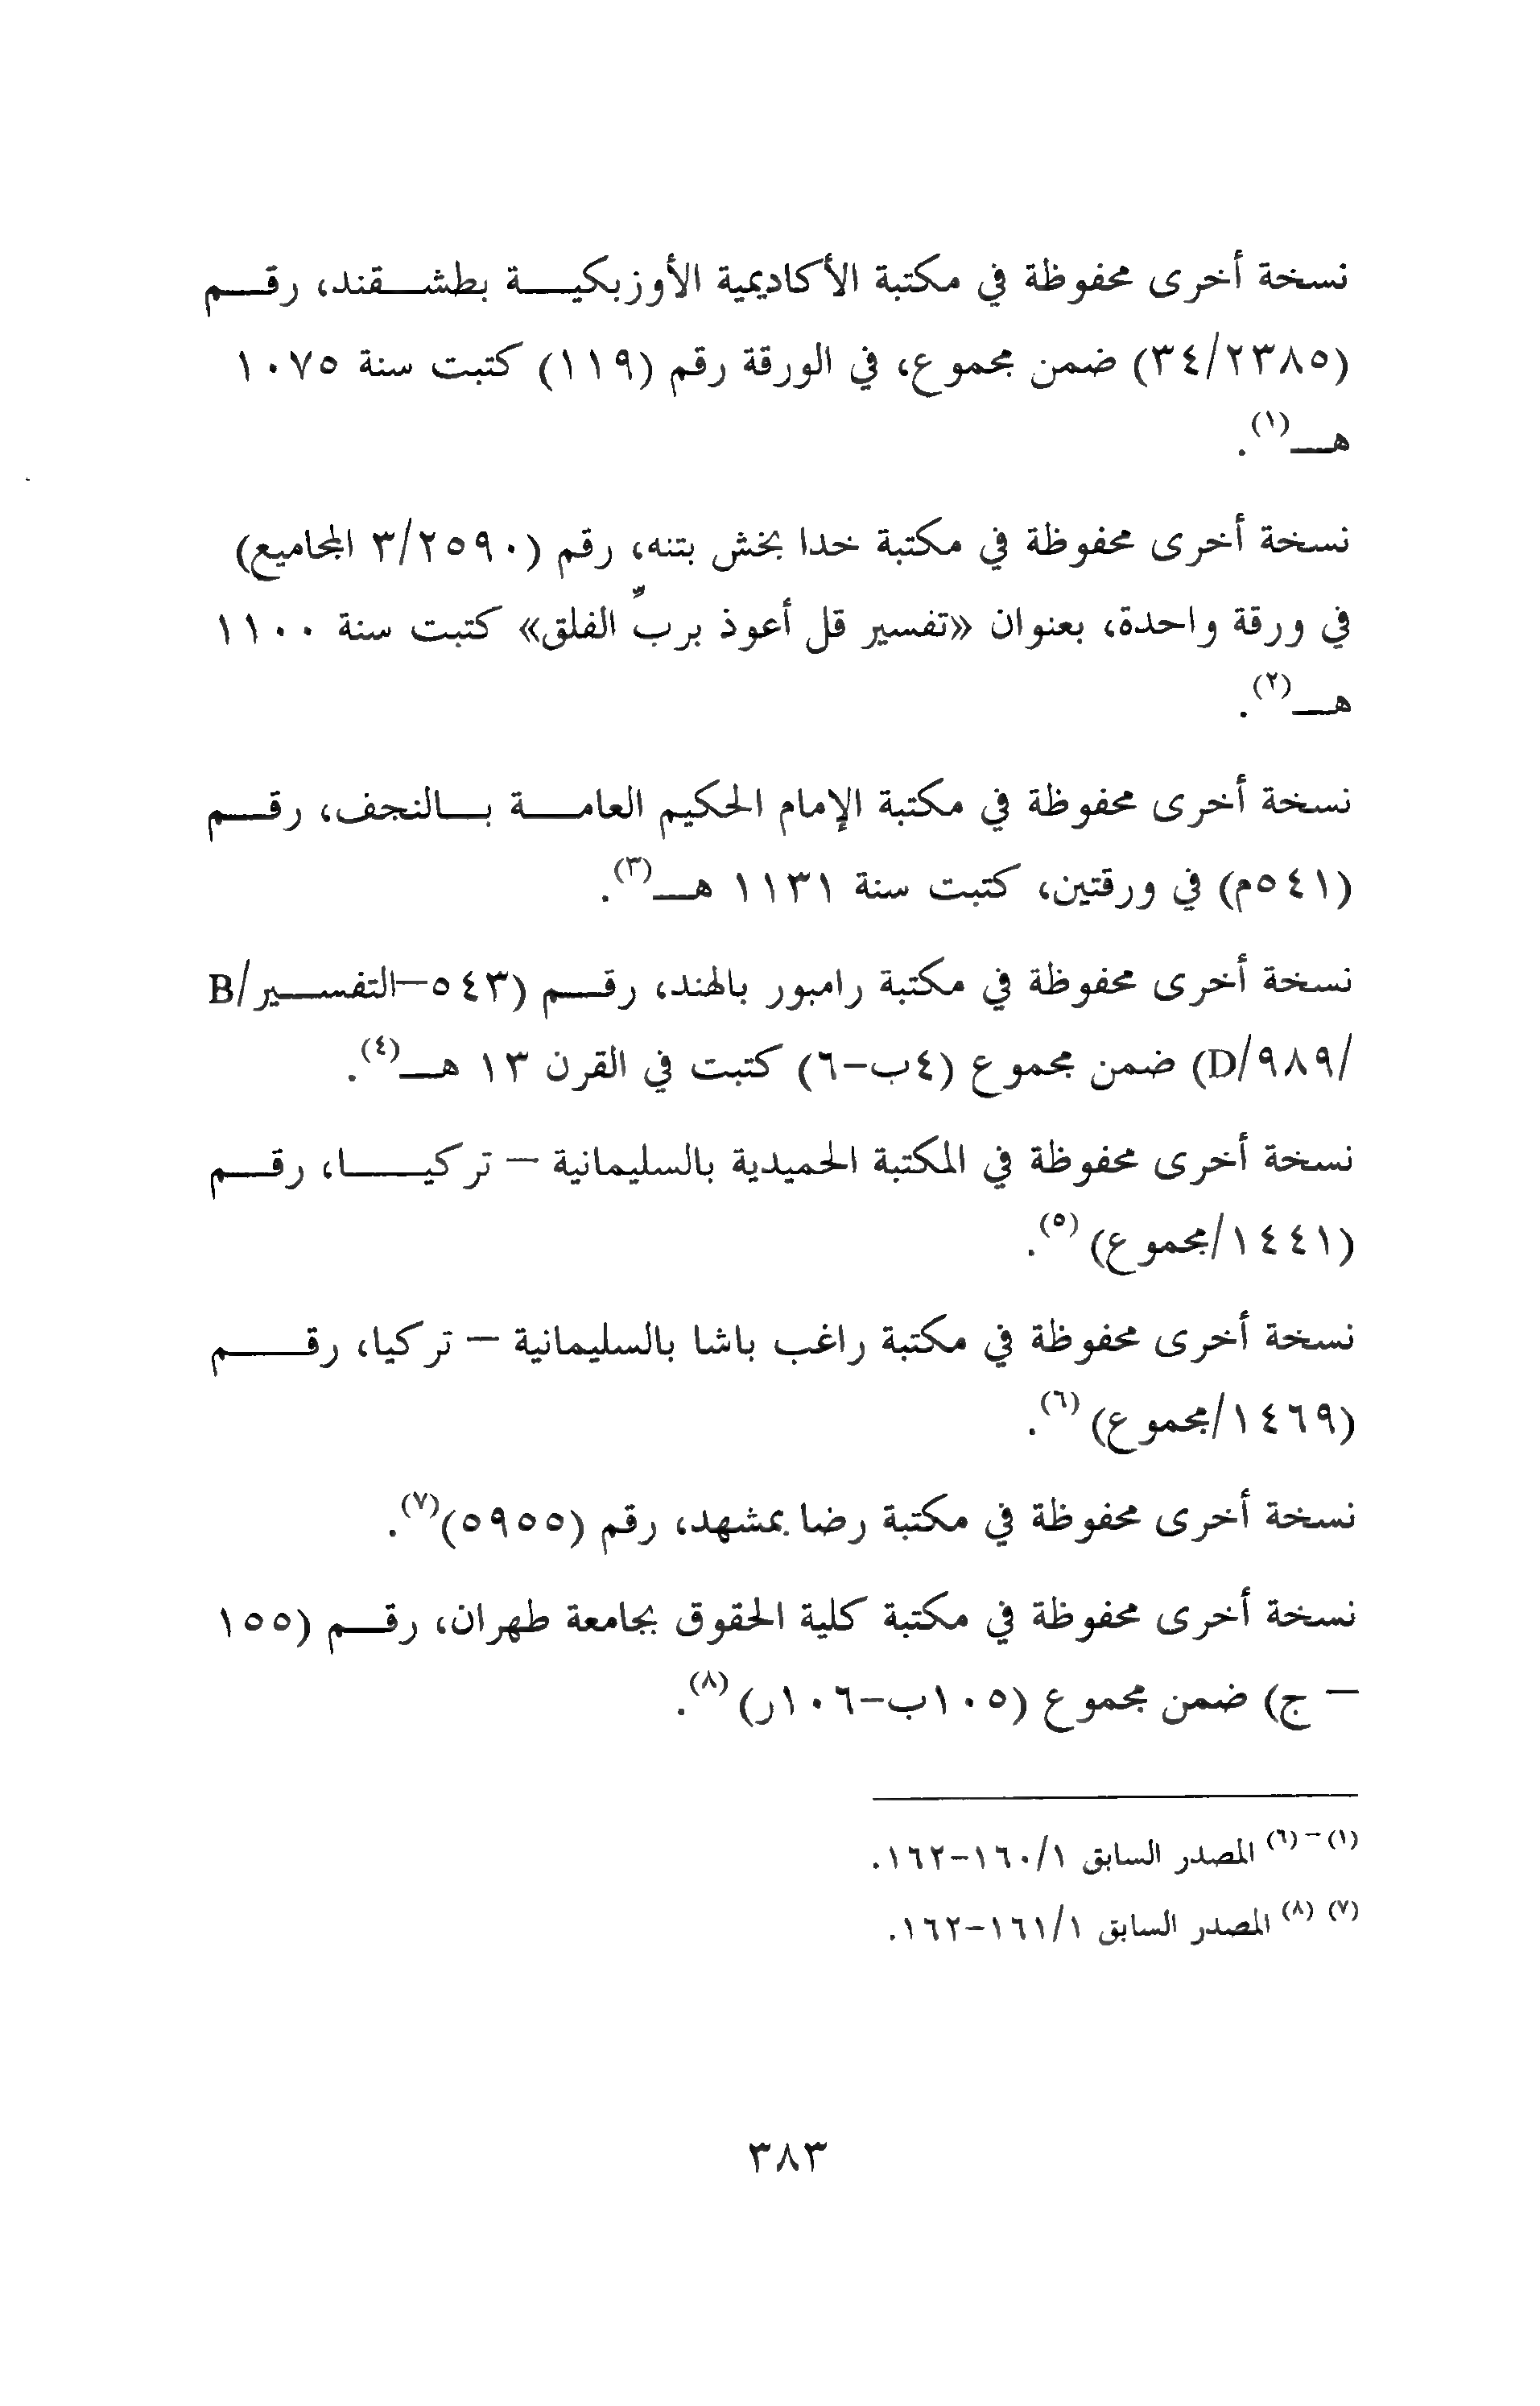 نسخة أخرى محفوظة في مكتبة الأكاديمية الأوزبكيـــة بطشــقند، رقــم
(٣٤/٢٣٨٥) ضمن مجموع، في الورقة رقم (١١٩) كتبت سنة ١٠٧٥
هــ(١).
نسخة أخرى محفوظة في مكتبة خدا بخش بتنه، رقم (٣/٢٥٩٠ المجاميع)
في ورقة واحدة، بعنوان «تفسير قل أعوذ بربِّ الفلق» كتبت سنة ١١٠٠
هــ(٢).
نسخة أخرى محفوظة في مكتبة الإمام الحكيم العامــة بــالنجف، رقــم
(٥٤١م) في ورقتين، كتبت سنة ١١٣١ هــ(٣).
نسخة أخرى محفوظة في مكتبة رامبور بالهند، رقــم (٥٤٣–التفســير/B
/٩٨٩/D) ضمن مجموع (٤ب-٦) كتبت في القرن ١٣ هــ(٤).
نسخة أخرى محفوظة في المكتبة الحميدية بالسليمانية – تركيــا، رقــم
(١٤٤١/مجموع) (٥).
نسخة أخرى محفوظة في مكتبة راغب باشا بالسليمانية – تركيا، رقـــم
(١٤٦٩/مجموع) (٦).
نسخة أخرى محفوظة في مكتبة رضا بمشهد، رقم (٥٩٥٥)(٧).
نسخة أخرى محفوظة في مكتبة كلية الحقوق بجامعة طهران، رقــم (١٥٥
– ج) ضمن مجموع (١٠٥ب-١٠٦ر) (٨).
(١) – (٦) المصدر السابق ١/١٦٠-١٦٢.
(٧) (٨) المصدر السابق ١/١٦١-١٦٢.
٣٨٣